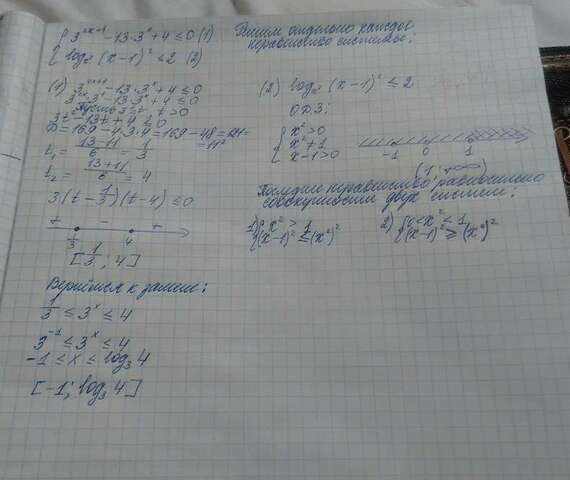 { 3^(2x+1) - 13·3^x + 4 ≤ 0 (1)
{ log_x² (x-1)² ≤ 2 (2)
Решим отдельно каждое
неравенство системы:
(1) 3^(2x+1) - 13·3^x + 4 ≤ 0
3^(2x)·3¹ - 13·3^x + 4 ≤ 0
Пусть 3^x = t, t > 0
3t² - 13t + 4 ≤ 0
D = 169 - 4·3·4 = 169 - 48 = 121 =
= 11²
t₁ = (13-11)/6 = 1/3
t₂ = (13+11)/6 = 4
3(t - 1/3)(t - 4) ≤ 0
+ - +
1/3 4
[1/3; 4]
Вернёмся к замене:
1/3 ≤ 3^x ≤ 4
3^(-1) ≤ 3^x ≤ 4
-1 ≤ x ≤ log₃ 4
[-1; log₃ 4]
(2) log_x² (x-1)² ≤ 2
ОДЗ:
{ x² > 0
{ x² ≠ 1
{ x-1 > 0
-1 0 1
(1; +∞)
Последнее неравенство равносильно
совокупности двух систем:
1) { x² > 1
{ (x-1)² ≤ (x²)²
2) { 0 < x² < 1
{ (x-1)² ≥ (x²)²